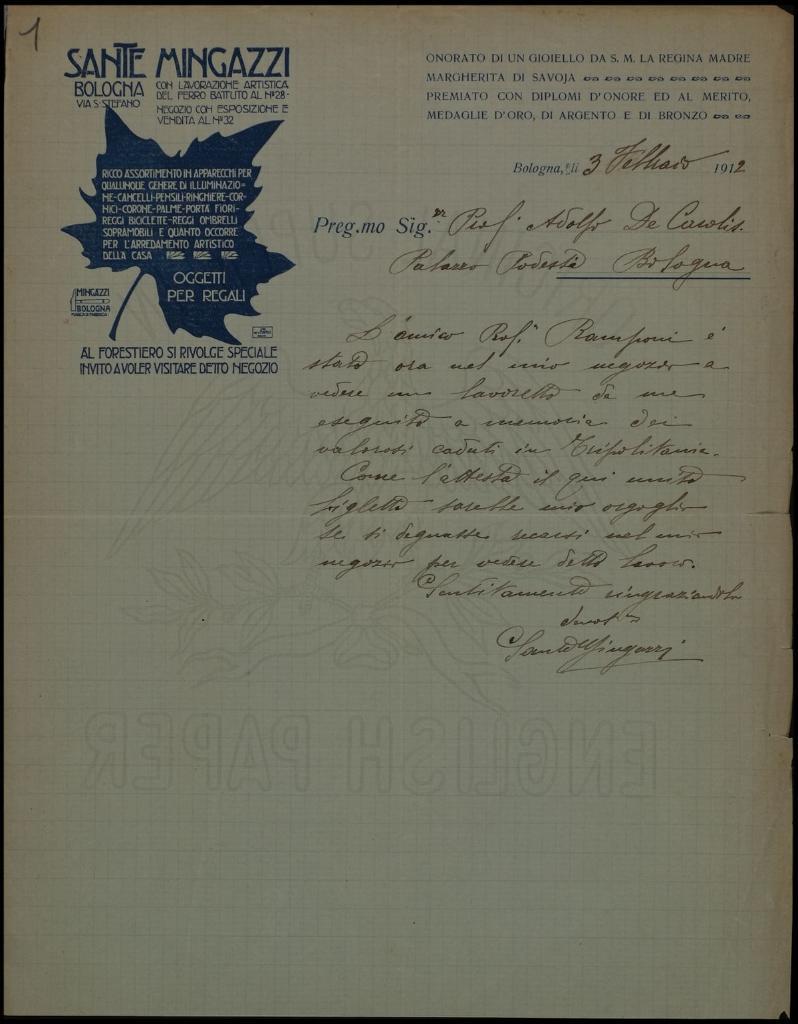 1
SANTE MINGAZZI
BOLOGNA
VIA S. STEFANO
CON LAVORAZIONE ARTISTICA
DEL FERRO BATTUTO AL Nº 28-
NEGOZIO CON ESPOSIZIONE E
VENDITA AL Nº 32
RICCO ASSORTIMENTO IN APPARECCHI PER
QUALUNQUE GENERE DI ILLUMINAZIO-
NE-CANCELLI-PENSILI-RINGHIERE-COR-
NICI-CORONE-PALME-PORTA FIORI-
REGGI BICICLETTE-REGGI OMBRELLI
SOPRAMOBILI E QUANTO OCCORRE
PER L'ARREDAMENTO ARTISTICO
DELLA CASA
OGGETTI
PER REGALI
MINGAZZI
BOLOGNA
AL FORESTIERO SI RIVOLGE SPECIALE
INVITO A VOLER VISITARE DETTO NEGOZIO
ONORATO DI UN GIOIELLO DA S. M. LA REGINA MADRE
MARGHERITA DI SAVOJA
PREMIATO CON DIPLOMI D'ONORE ED AL MERITO,
MEDAGLIE D'ORO, DI ARGENTO E DI BRONZO
Bologna, li 3 Febbraio 1912
Preg.mo Sig.r Prof. Adolfo De Carolis.
Palazzo Podestà Bologna
L'amico Prof. Ramponi è
stato ora nel mio negozio a
vedere un lavoretto da me
eseguito a memoria dei
valorosi caduti in Tripolitania.
Come l'attesta il qui unito
biglietto sarebbe mio orgoglio
se si degnasse recarsi nel mio
negozio per vedere detto lavoro.
Sentitamente ringraziandola
devot.mo
Sante Mingazzi
ENGLISH PAPER